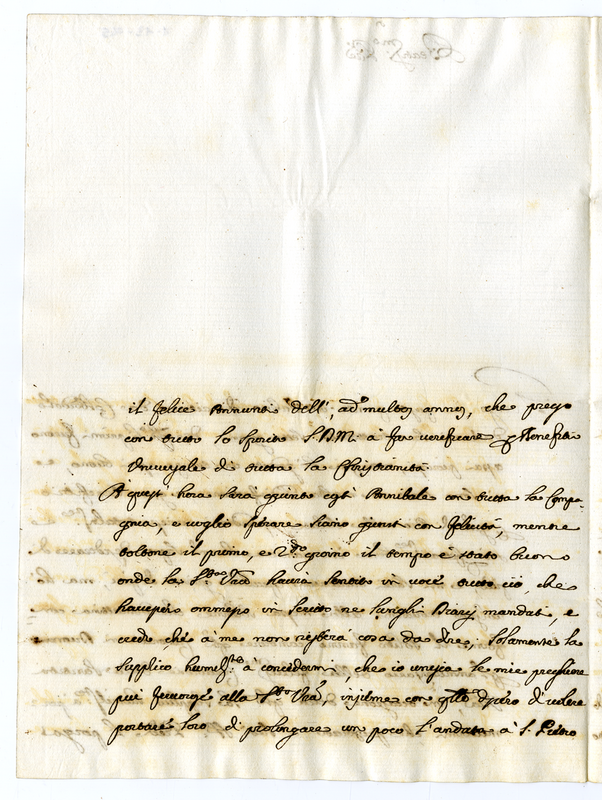 il felice Annuntio dell', ad multos annos, che prego
con tutto lo spirito S.D.M. à far verificare p benefitio
Universale di tutta la Christianità.
A quest' hora sarà giunto egli Annibale con tutta la Compa-
gnia, e voglio sperare siano giunti con felicità, mentre
toltone il primo, e 2.do giorno il tempo è stato buono
onde la S.tà V.ra haurà sentito in voce tutto ciò, che
havessi ommesso in scritto ne lunghi Diarij mandati, e
credo che à me non resterà cosa da dire, solamente la
supplico humil.te à concedermi, che io unisca le mie preghiere
più fervorose alla S.tà V.ra, insieme con q.llo
portare loro di prolongare un poco l'andata à S. Pietro